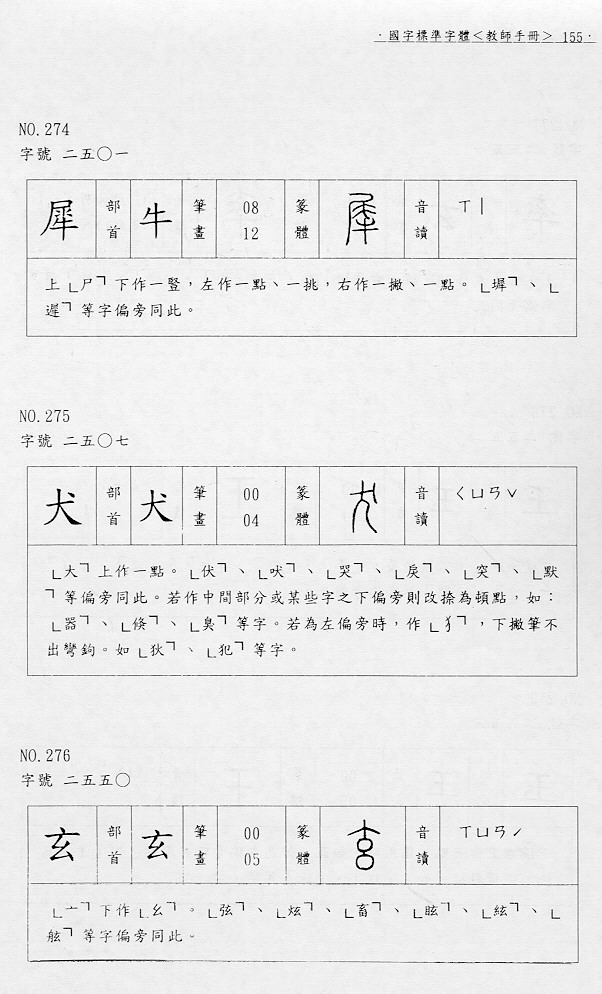 ·國字標準字體<教師手冊> 155·
NO.274
字號 二五〇一
犀 部首 牛 筆畫 08 12 篆體 音讀 ㄒㄧ
上「尸」下作一豎，左作一點、一挑，右作一撇、一點。「墀」、「
遲」等字偏旁同此。
NO.275
字號 二五〇七
犬 部首 犬 筆畫 00 04 篆體 音讀 ㄑㄩㄢˇ
「大」上作一點。「伏」、「吠」、「哭」、「戾」、「突」、「默
」等偏旁同此。若作中間部分或某些字之下偏旁則改捺為頓點，如：
「器」、「倏」、「臭」等字。若為左偏旁時，作「犭」，下撇筆不
出彎鉤。如「狄」、「犯」等字。
NO.276
字號 二五五〇
玄 部首 玄 筆畫 00 05 篆體 音讀 ㄒㄩㄢˊ
「亠」下作「幺」。「弦」、「炫」、「畜」、「眩」、「絃」、「
舷」等字偏旁同此。